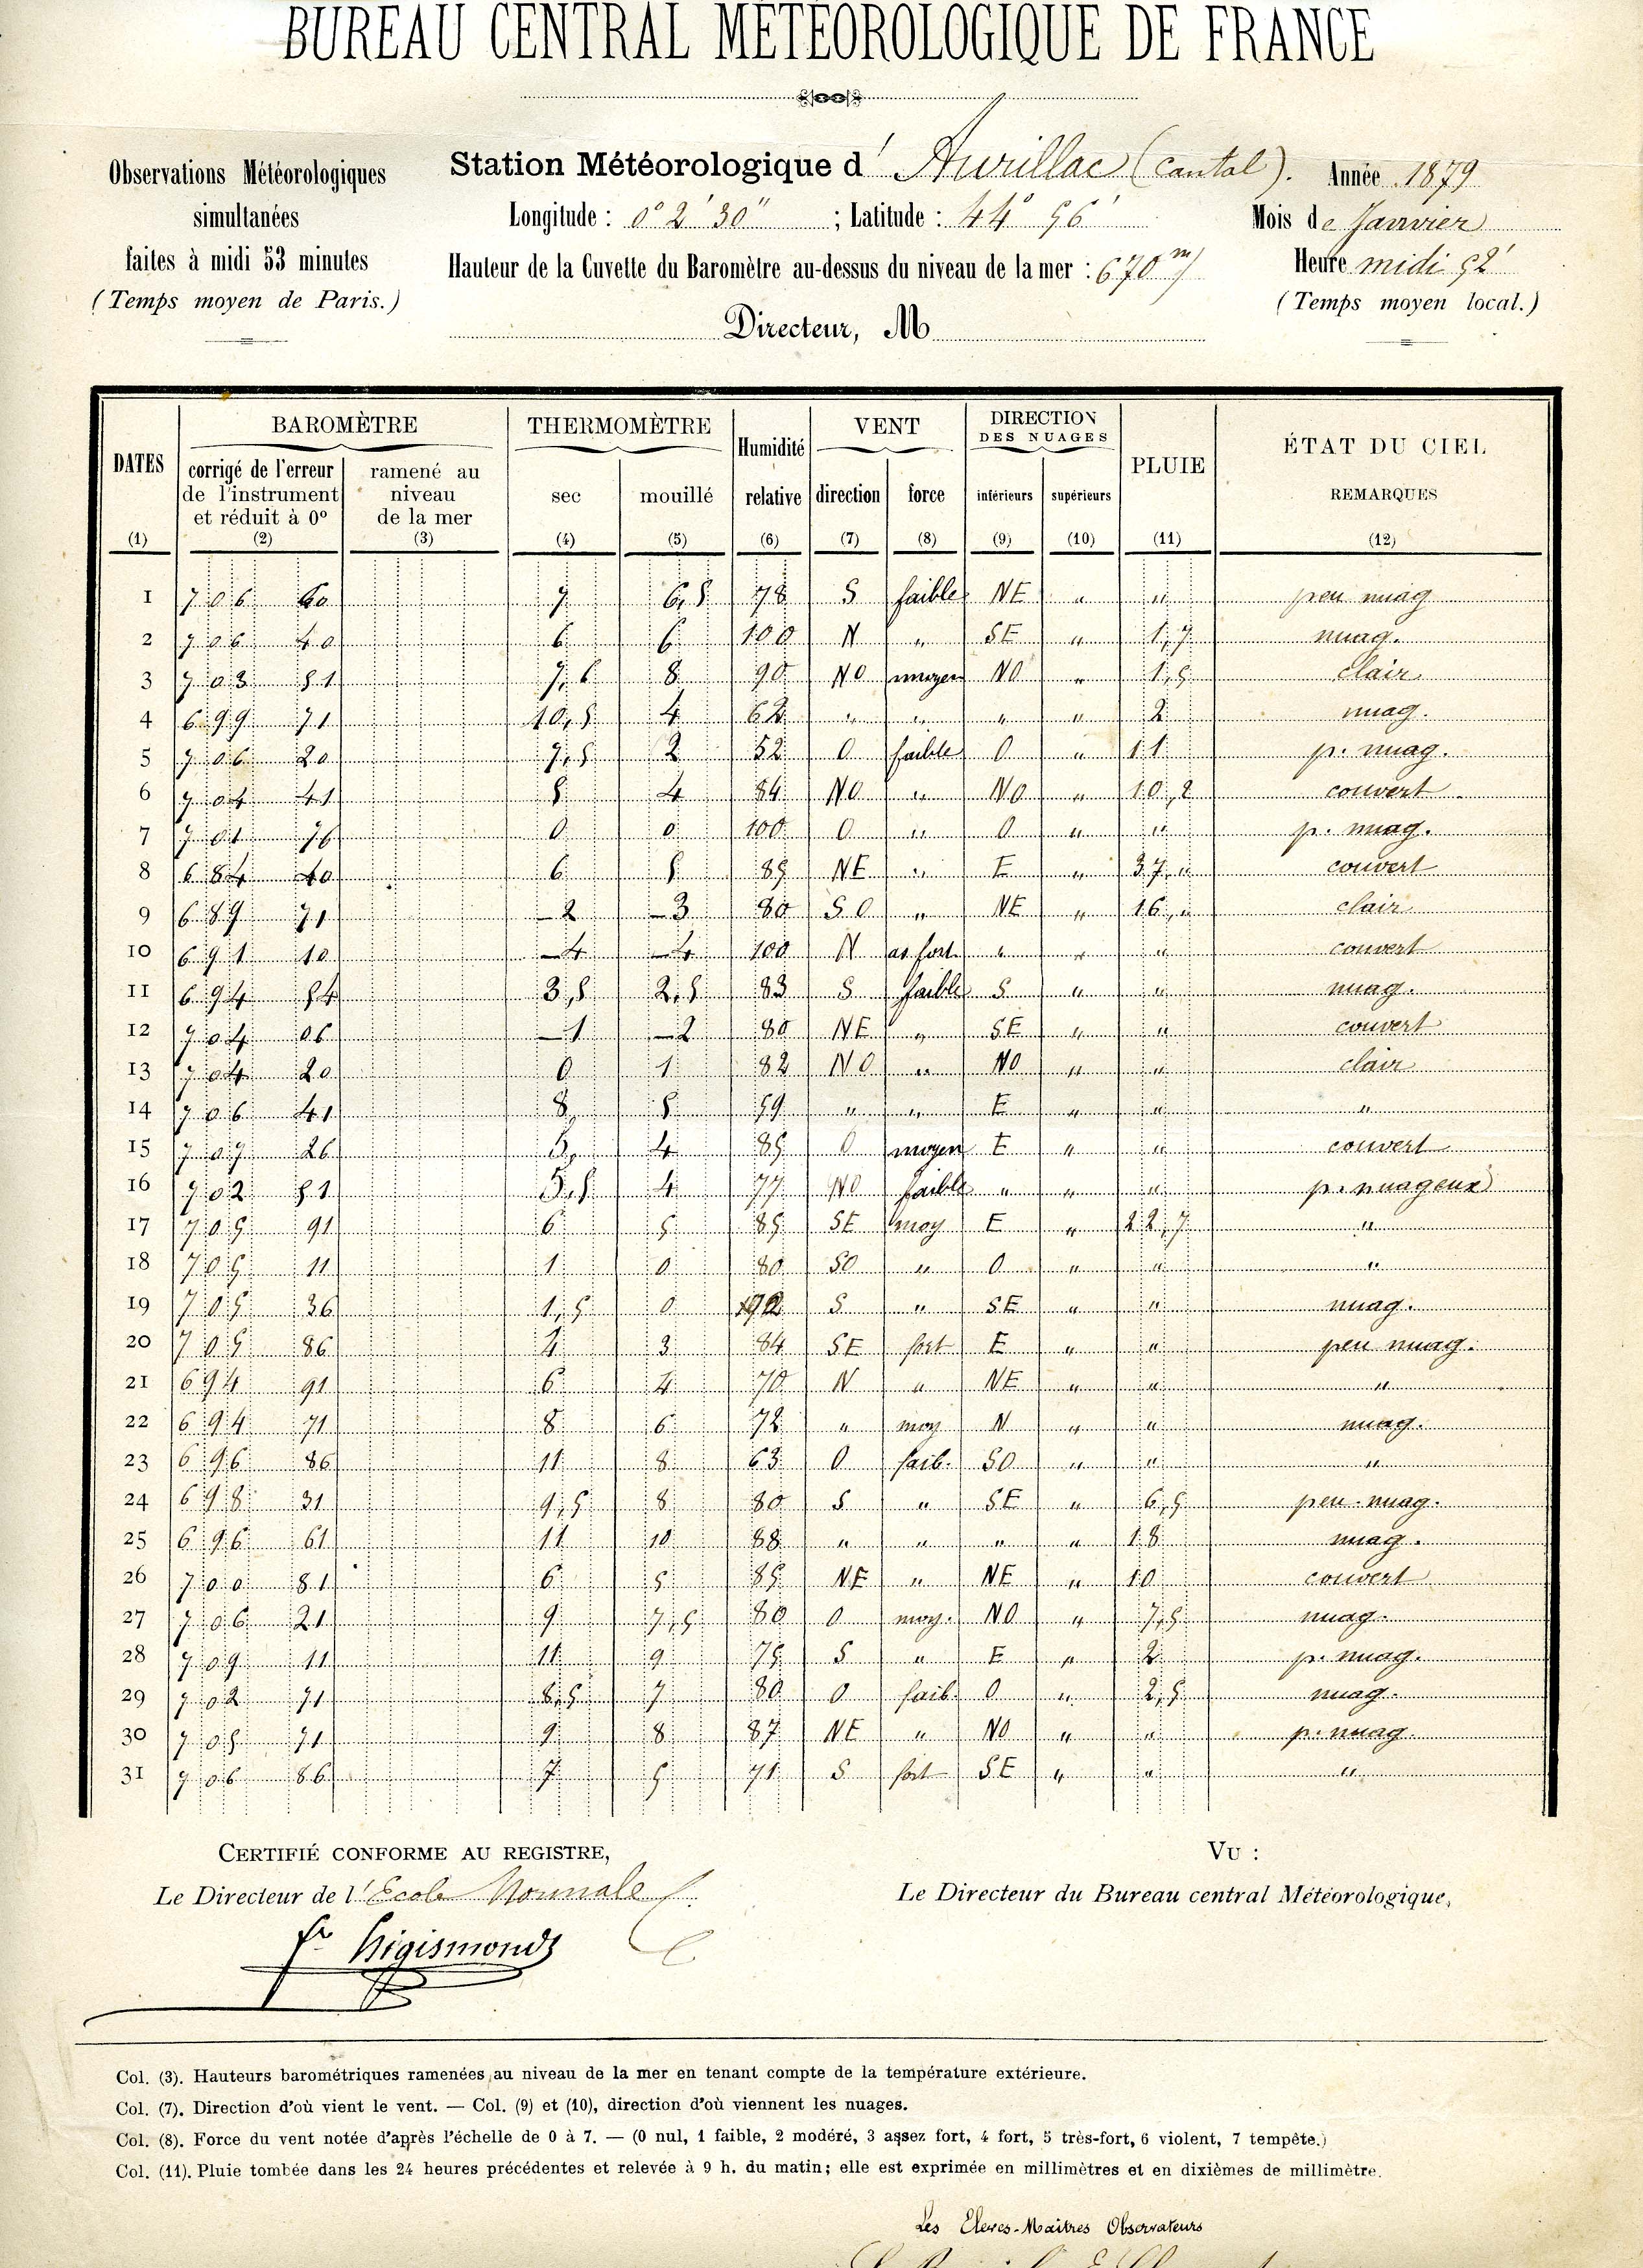 BUREAU CENTRAL MÉTÉOROLOGIQUE DE FRANCE
Observations Météorologiques
simultanées
faites à midi 53 minutes
(Temps moyen de Paris.)
Station Météorologique d' Aurillac (Cantal).
Longitude : 0° 2' 30" ; Latitude : 44° 56'
Hauteur de la Cuvette du Baromètre au-dessus du niveau de la mer : 670 m
Directeur, M
Année 1879
Mois de Janvier
Heure midi 52'
(Temps moyen local.)
DATES BAROMÈTRE THERMOMÈTRE Humidité relative VENT DIRECTION DES NUAGES PLUIE ÉTAT DU CIEL
corrigé de l'erreur de l'instrument et réduit à 0° ramené au niveau de la mer sec mouillé direction force inférieurs supérieurs REMARQUES
(1) (2) (3) (4) (5) (6) (7) (8) (9) (10) (11) (12)
1 706 60 7 6,5 78 S faible NE " " peu nuag
2 706 40 6 6 100 N " SE " 1,7 nuag.
3 703 51 7,6 8 90 NO moyen NO " 1,5 clair
4 699 71 10,5 4 62 " " " " 2 nuag.
5 706 20 7,5 2 52 O faible O " 11 p. nuag.
6 704 41 5 4 84 NO " NO " 10,2 couvert
7 701 76 0 0 100 O " O " " p. nuag.
8 684 40 6 5 85 NE " E " 37," couvert
9 689 71 -2 -3 80 SO " NE " 16," clair
10 691 10 -4 -4 100 N as. fort " " " couvert
11 694 54 3,5 2,5 83 S faible S " " nuag.
12 704 06 -1 -2 80 NE " SE " " couvert
13 704 20 0 1 82 NO " NO " " clair
14 706 41 8 5 59 " " E " " "
15 707 26 5 4 85 O moyen E " " couvert
16 702 51 5,5 4 77 NO faible " " " p. nuageux
17 705 91 6 5 85 SE moy E " 22,7 "
18 705 11 1 0 80 SO " O " " "
19 705 36 1,5 0 S " SE " " nuag.
20 705 86 4 3 84 SE fort E " " peu nuag.
21 694 91 6 4 70 N " NE " " "
22 694 71 8 6 72 " moy N " " nuag.
23 696 86 11 8 63 O faib. SO " " "
24 698 31 9,5 8 80 S " SE " 6,5 peu nuag.
25 696 61 11 10 88 " " " " 18 nuag.
26 700 81 6 5 85 NE " NE " 10 couvert
27 706 21 9 7,5 80 O moy. NO " 7,5 nuag.
28 709 11 11 9 75 S " E " 2 p. nuag.
29 702 71 8,5 7 80 O faib. O " 2,5 nuag.
30 705 71 9 8 87 NE " NO " " p. nuag.
31 706 86 7 5 71 S fort SE " " "
CERTIFIÉ CONFORME AU REGISTRE,
Le Directeur de l'Ecole Normale
fr Sigismonds
VU :
Le Directeur du Bureau central Météorologique,
Col. (3). Hauteurs barométriques ramenées au niveau de la mer en tenant compte de la température extérieure.
Col. (7). Direction d'où vient le vent. — Col. (9) et (10), direction d'où viennent les nuages.
Col. (8). Force du vent notée d'après l'échelle de 0 à 7. — (0 nul, 1 faible, 2 modéré, 3 assez fort, 4 fort, 5 très-fort, 6 violent, 7 tempête.)
Col. (11). Pluie tombée dans les 24 heures précédentes et relevée à 9 h. du matin; elle est exprimée en millimètres et en dixièmes de millimètre.
Les Elèves-Maîtres Observateurs